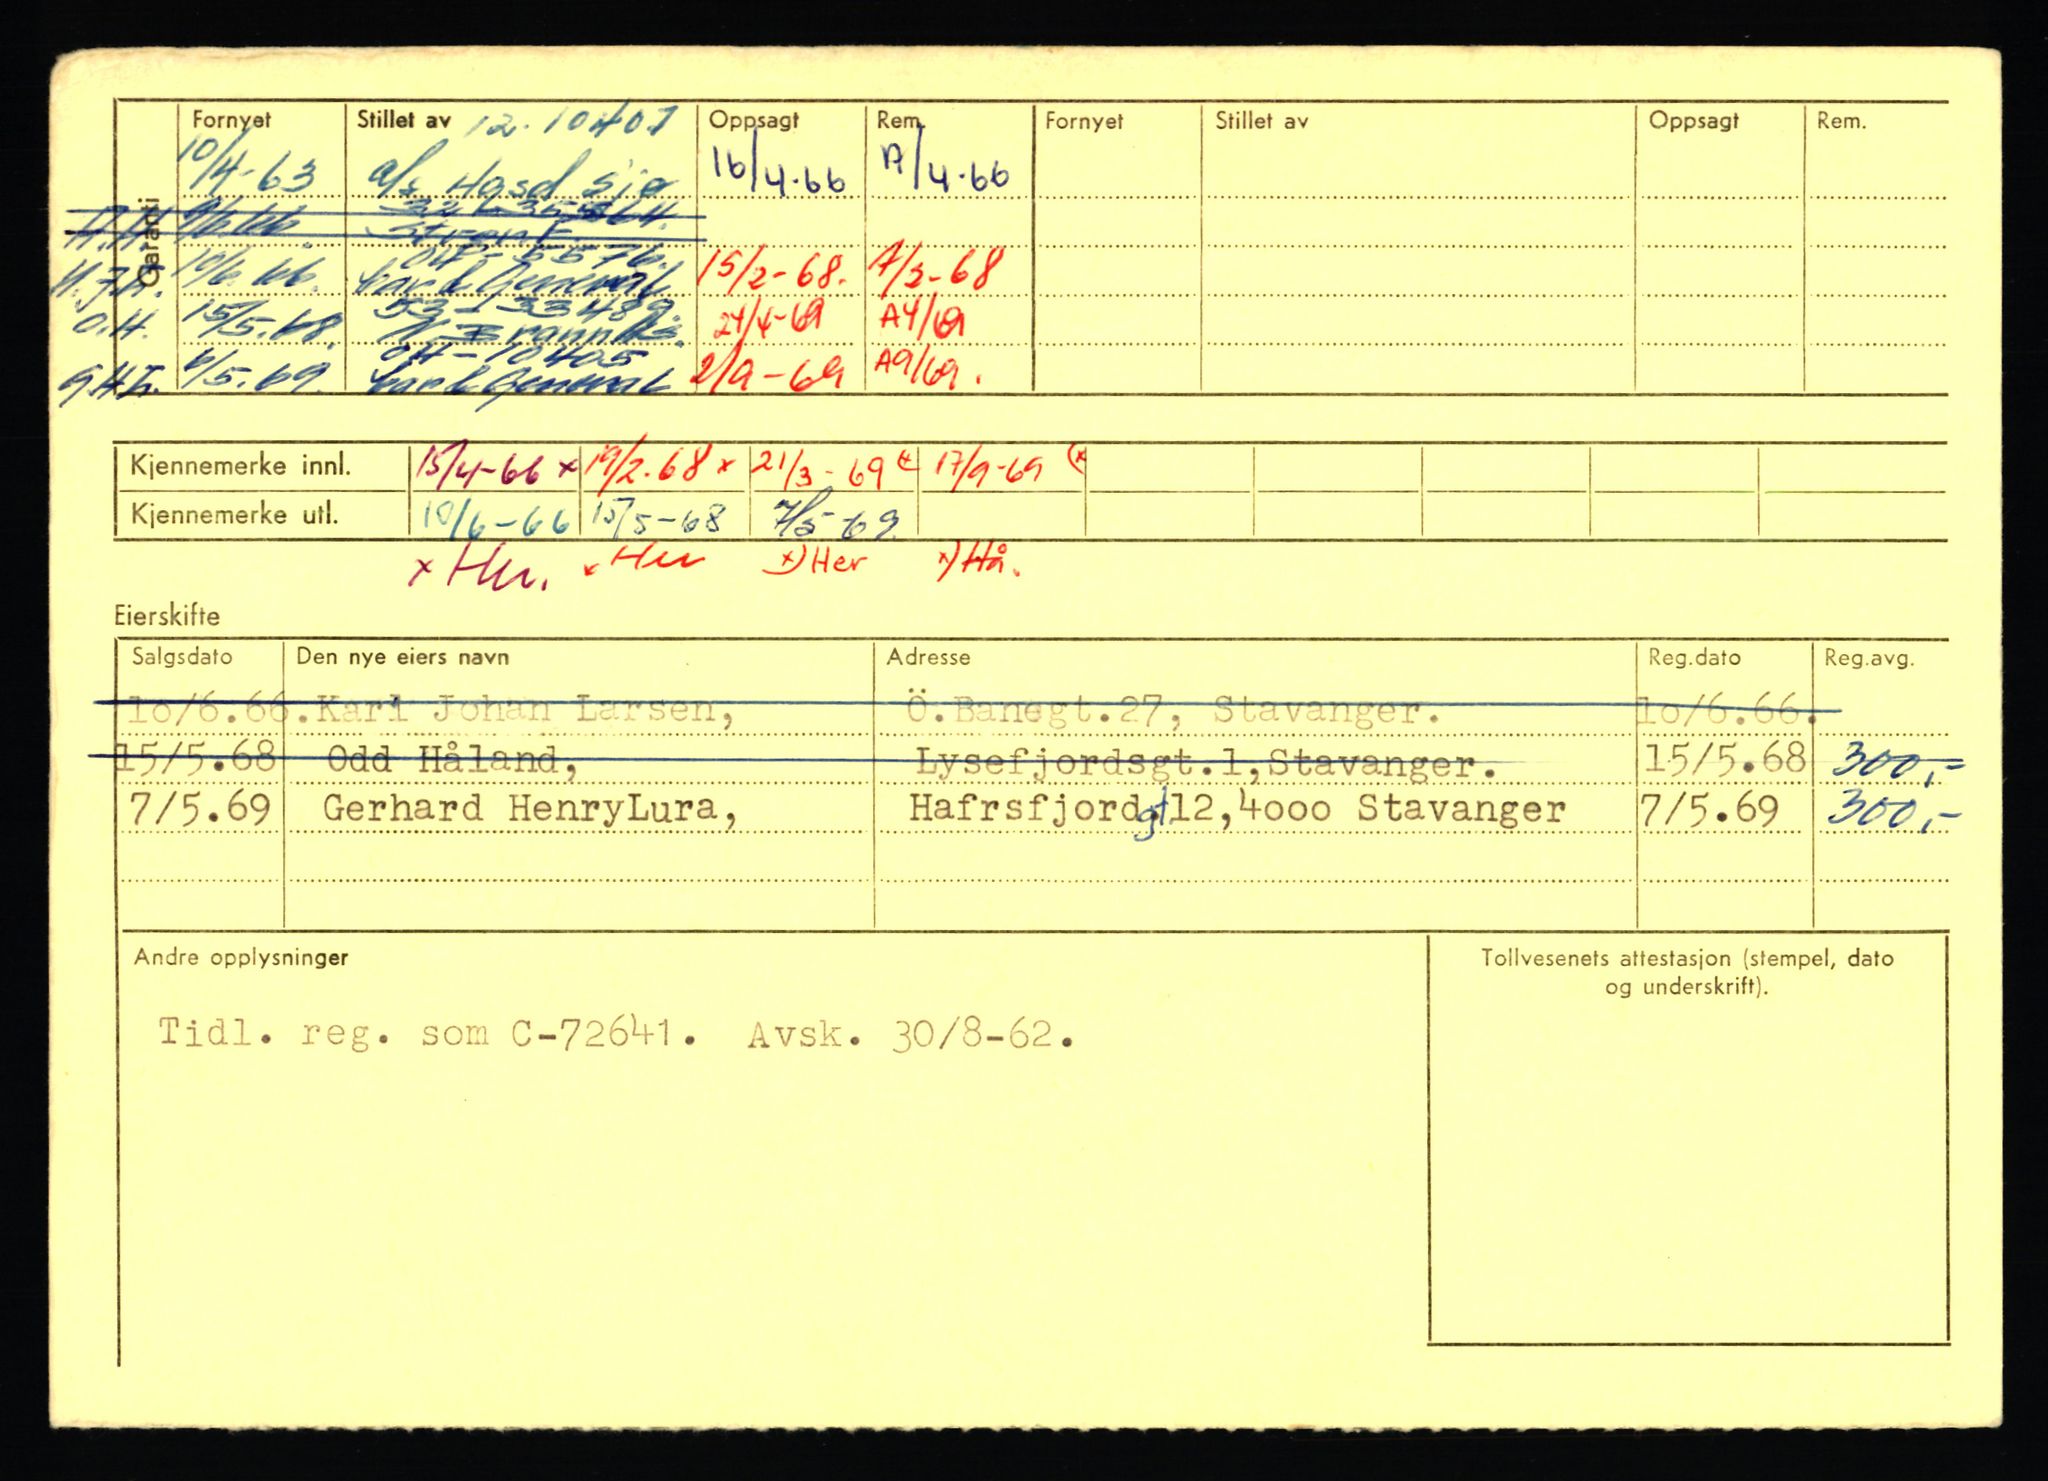 Garanti
Fornyet Stillet av 12. 10407 Oppsagt Rem. Fornyet Stillet av Oppsagt Rem.
10/4-63 a/s 16/4-66 A/4-66
10/6.66. 15/2-68. A/3-68
O.H. 15/5.68. 24/4-69 A4/69
04-10405
6/5.69. General 2/9-69 A9/69.
Kjennemerke innl. 15/4-66 x 19/2.68 x 21/3-69 17/9-69
Kjennemerke utl. 10/6-66 15/5-68 7/5-69.
x Her. x Her x) Her x) Hå.
Eierskifte
Salgsdato Den nye eiers navn Adresse Reg.dato Reg.avg.
1o/6.66. Karl Johan Larsen, Ö.Banegt.27, Stavanger. 1o/6.66.
15/5.68 Odd Håland, Lysefjordsgt.1,Stavanger. 15/5.68 300,-
7/5.69 Gerhard HenryLura, Hafrsfjordgt12,4ooo Stavanger 7/5.69 300,-
Andre opplysninger
Tollvesenets attestasjon (stempel, dato
og underskrift).
Tidl. reg. som C-72641. Avsk. 30/8-62.